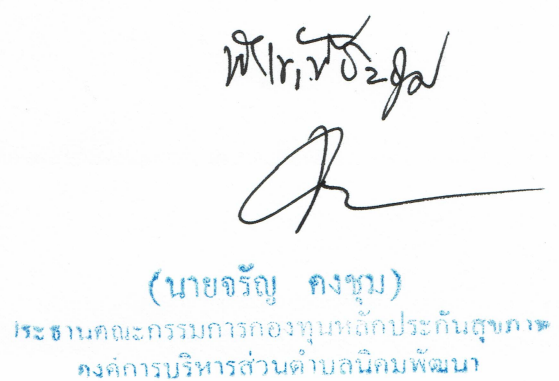 (นายจรัญ คงชุม)
ประธานคณะกรรมการกองทุนหลักประกันสุขภาพ
องค์การบริหารส่วนตำบลนิคมพัฒนา